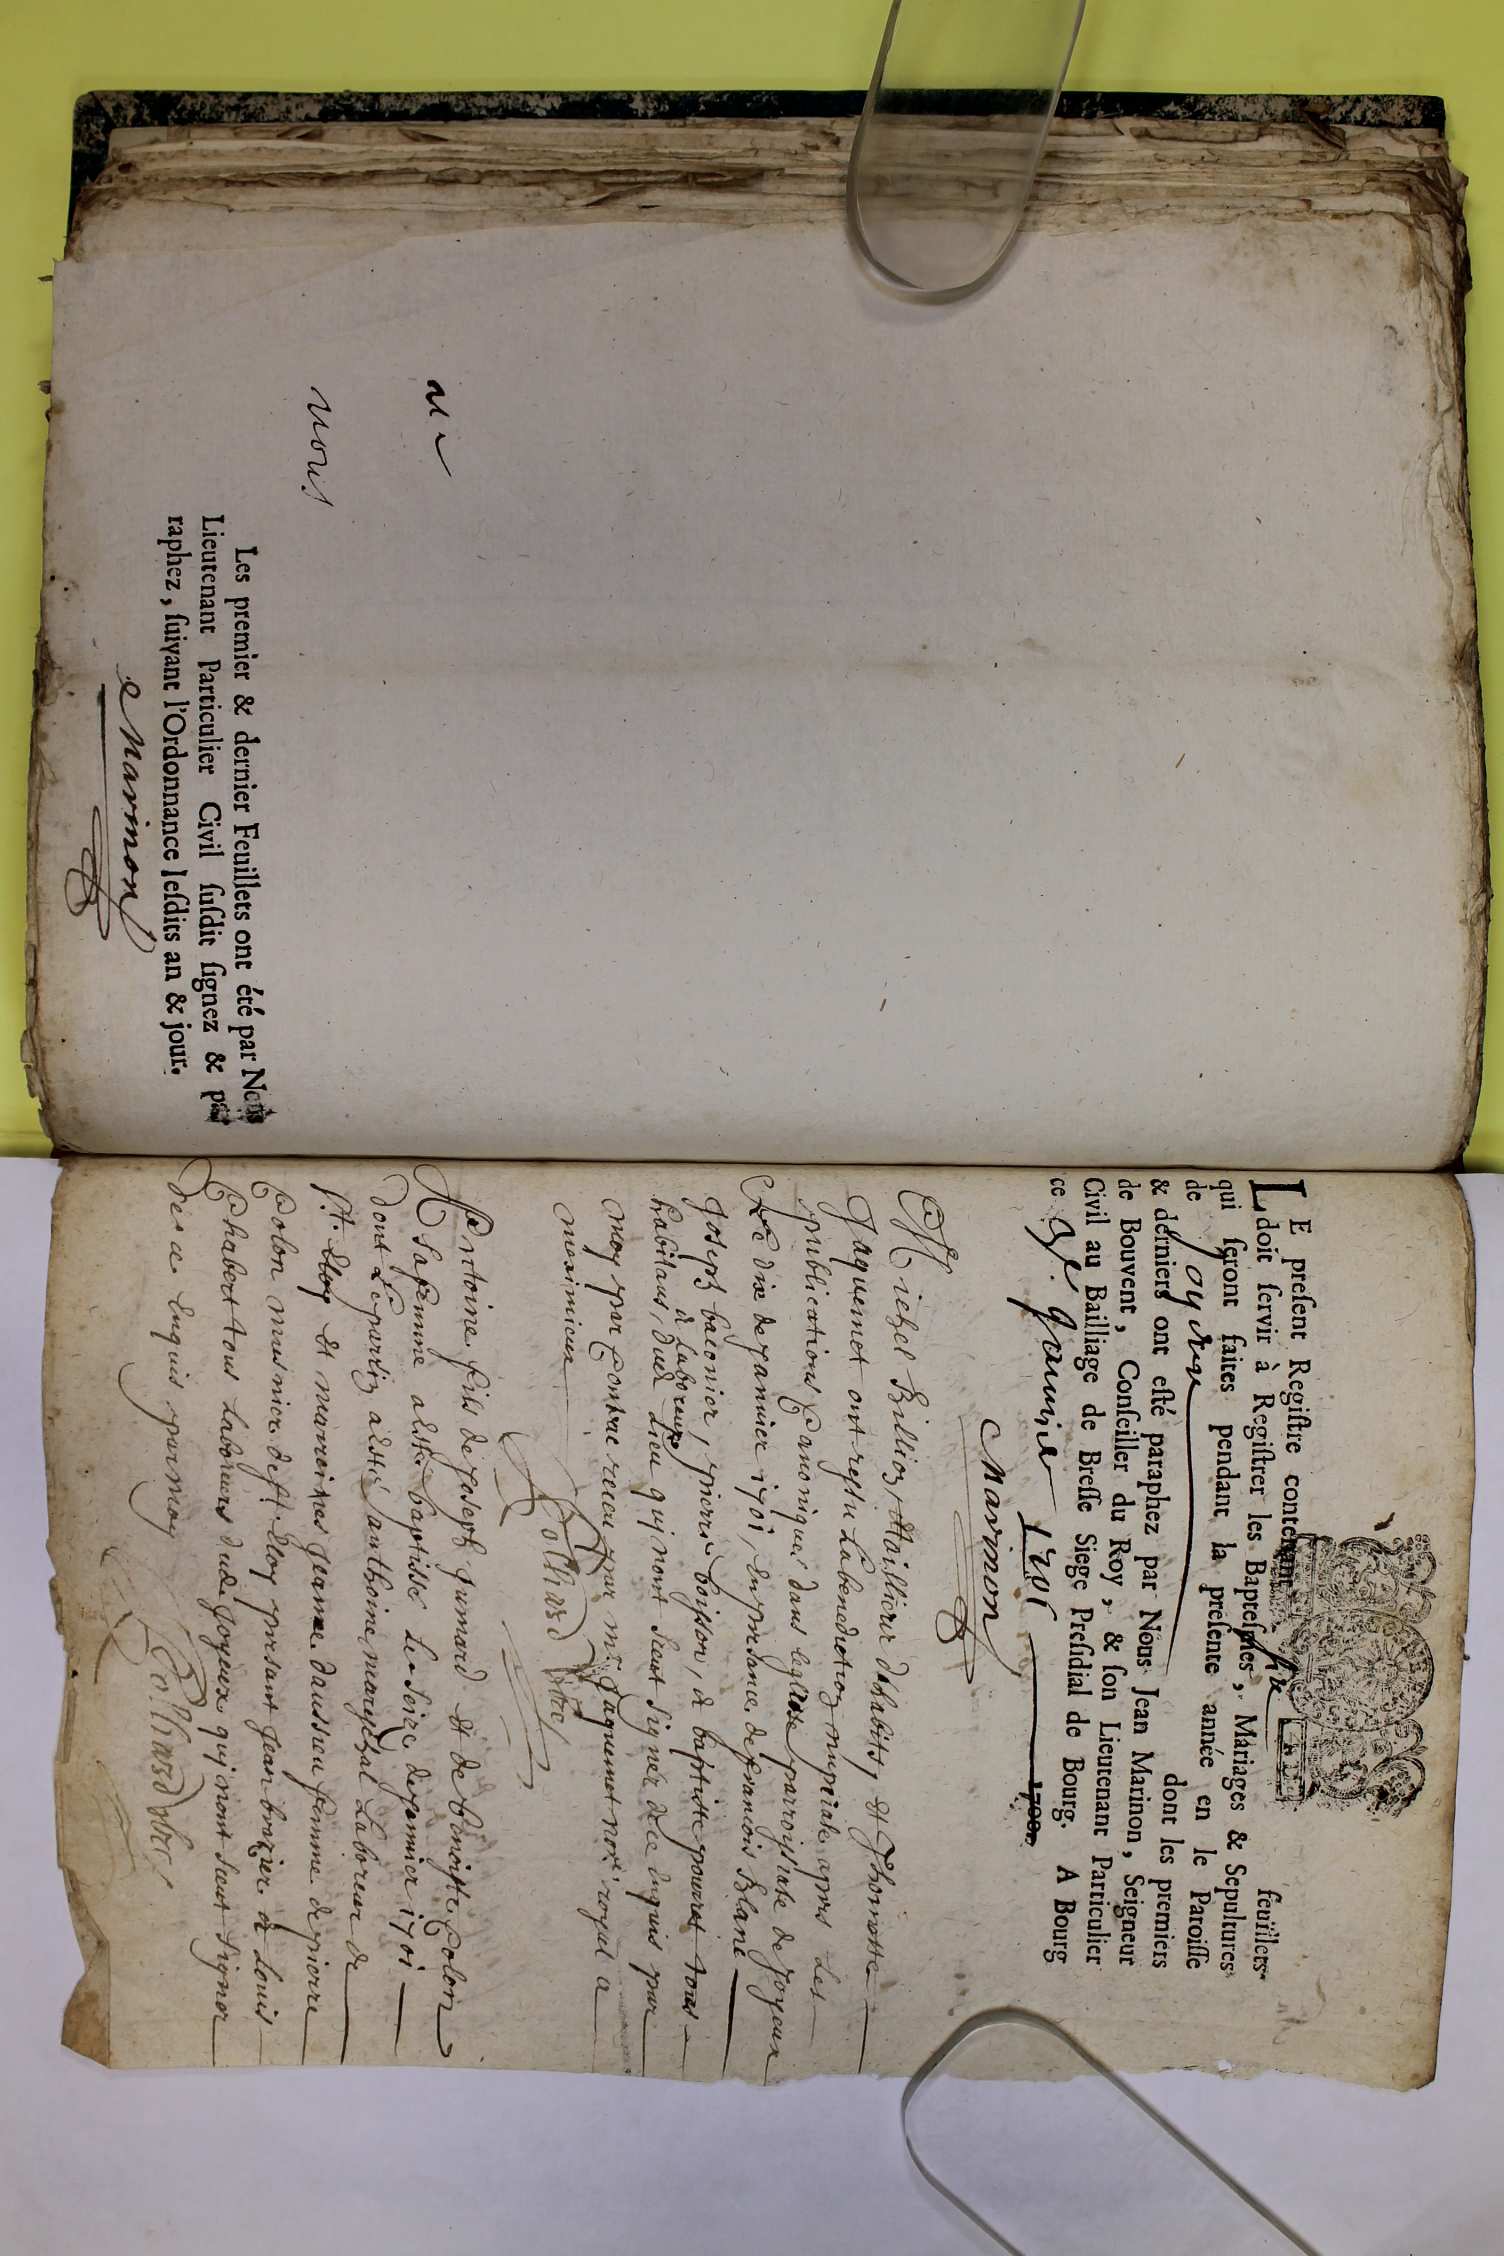 ne
nous
Les premier & dernier Feuillets ont été par Nous
Lieutenant Particulier Civil ſuſdit ſignez & pa-
raphez, ſuivant l'Ordonnance leſdits an & jour.
Marinon
LE preſent Regiſtre contenant ſix feuïllets
doit ſervir à Regiſtrer les Bapteſmes, Mariages & Sepultures
qui ſeront faites pendant la preſente année en le Paroiſſe
de Joyeux
& derniers ont eſté paraphez par Nous Jean Marinon, Seigneur dont les premiers
de Bouvent, Conſeiller du Roy, & ſon Lieutenant Particulier
Civil au Bailliage de Breſſe Siege Preſidial de Bourg. A Bourg
ce Janvier 1701 1700.
Marinon
Michel Billioz tailleur d'habits, et Thomette
Jaquemet ont reſſu la benediction nuptiale apres les
publications canoniques dans leglise parroissiale de joyeux
Le dix de janvier 1701, en preſance de francois Blanc
Joseph baconier, pierre boiſſon, & baptiste pourret tous
& laboreurs
habitans, dud lieu qui nont sceut signer de ce enquis par
moy par contrac receu par mr Jaquemet nore royal a
meximieux
Colliard
Antoine fils de Joseph Jumard et de benoiste Colon
sa femme a esté baptisé le seize de janvier 1701
dont le parrin a esté anthoine mareschal laboreur de
St. Eloy et marreines jeanne daussieu femme de pierre
Colon musnier de St. Eloy preſant jean brazier & louis
Chabert tous laboreurs dud joyeux qui nont sceut signer
de ce enquis par moy
Colliard